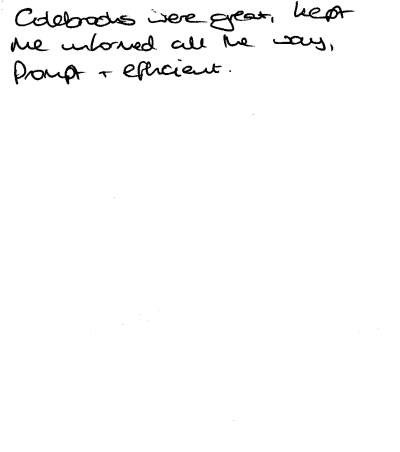 Colebrooks were great, kept
me informed all the way,
Prompt + efficient.